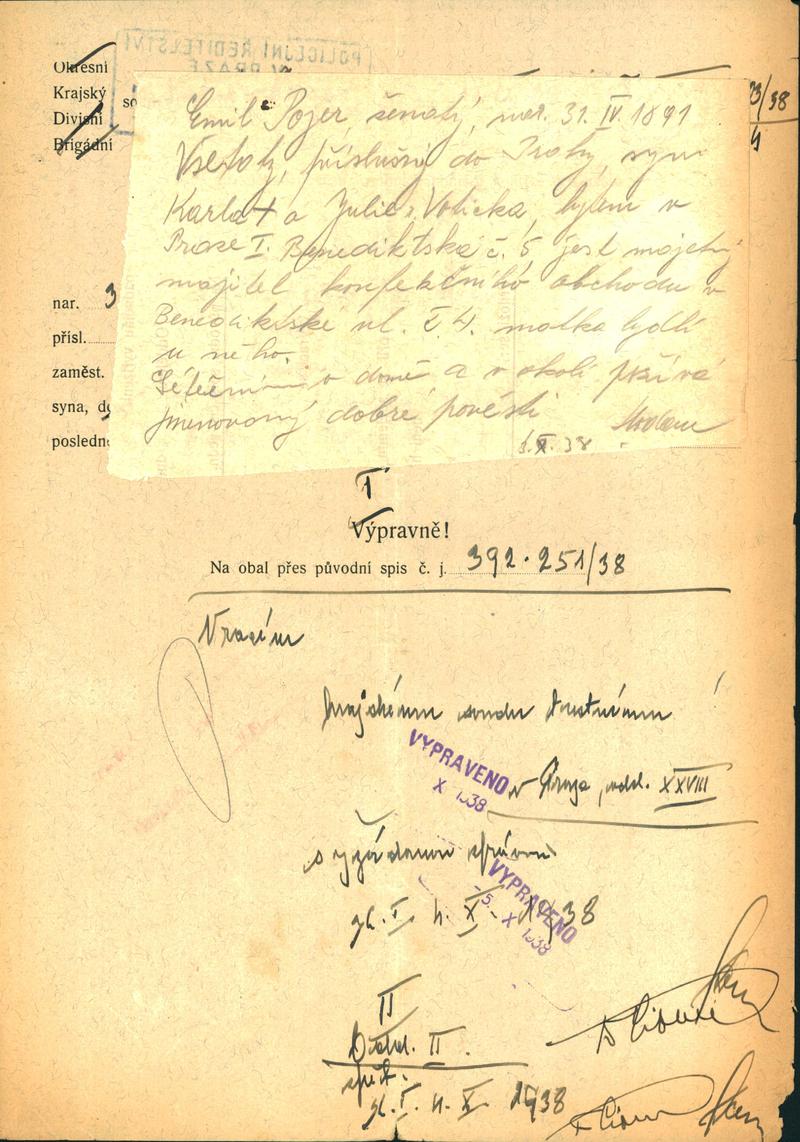 POLICEJNÍ ŘEDITELSTVÍ
V PRAZE
Okresní
Krajský
Divisní
Brigádní
so
3/38
4
Emil Pojer, ženatý, nar. 31. IV. 1891
Všetaty, příslušný do Prahy, syn
Karla + a Julie, Votická, bytem v
Praze I. Benediktská č. 5 jest majetný
majitel konfekčního obchodu v
Benediktské ul. č 4. matka bydlí
u něho.
v domě a v okolí požívá
jmenovaný dobré pověsti
3.X.38
nar. 3
přísl.
zaměst.
syna, dc
posledn
I
Výpravně!
Na obal přes původní spis č. j. 392.251/38
Vracím
krajskému soudu trestnímu
v Praze, odd. XXVIII
VYPRAVENO
X 1938
s vyžádanou zprávou
VYPRAVENO
-5. X 1938
4. X. 1938
II
Odděl. II.
zpět.
4. X. 1938